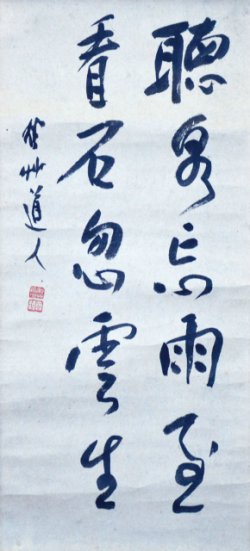 聽泉忘雨至
看石忽雲生
秋艸道人